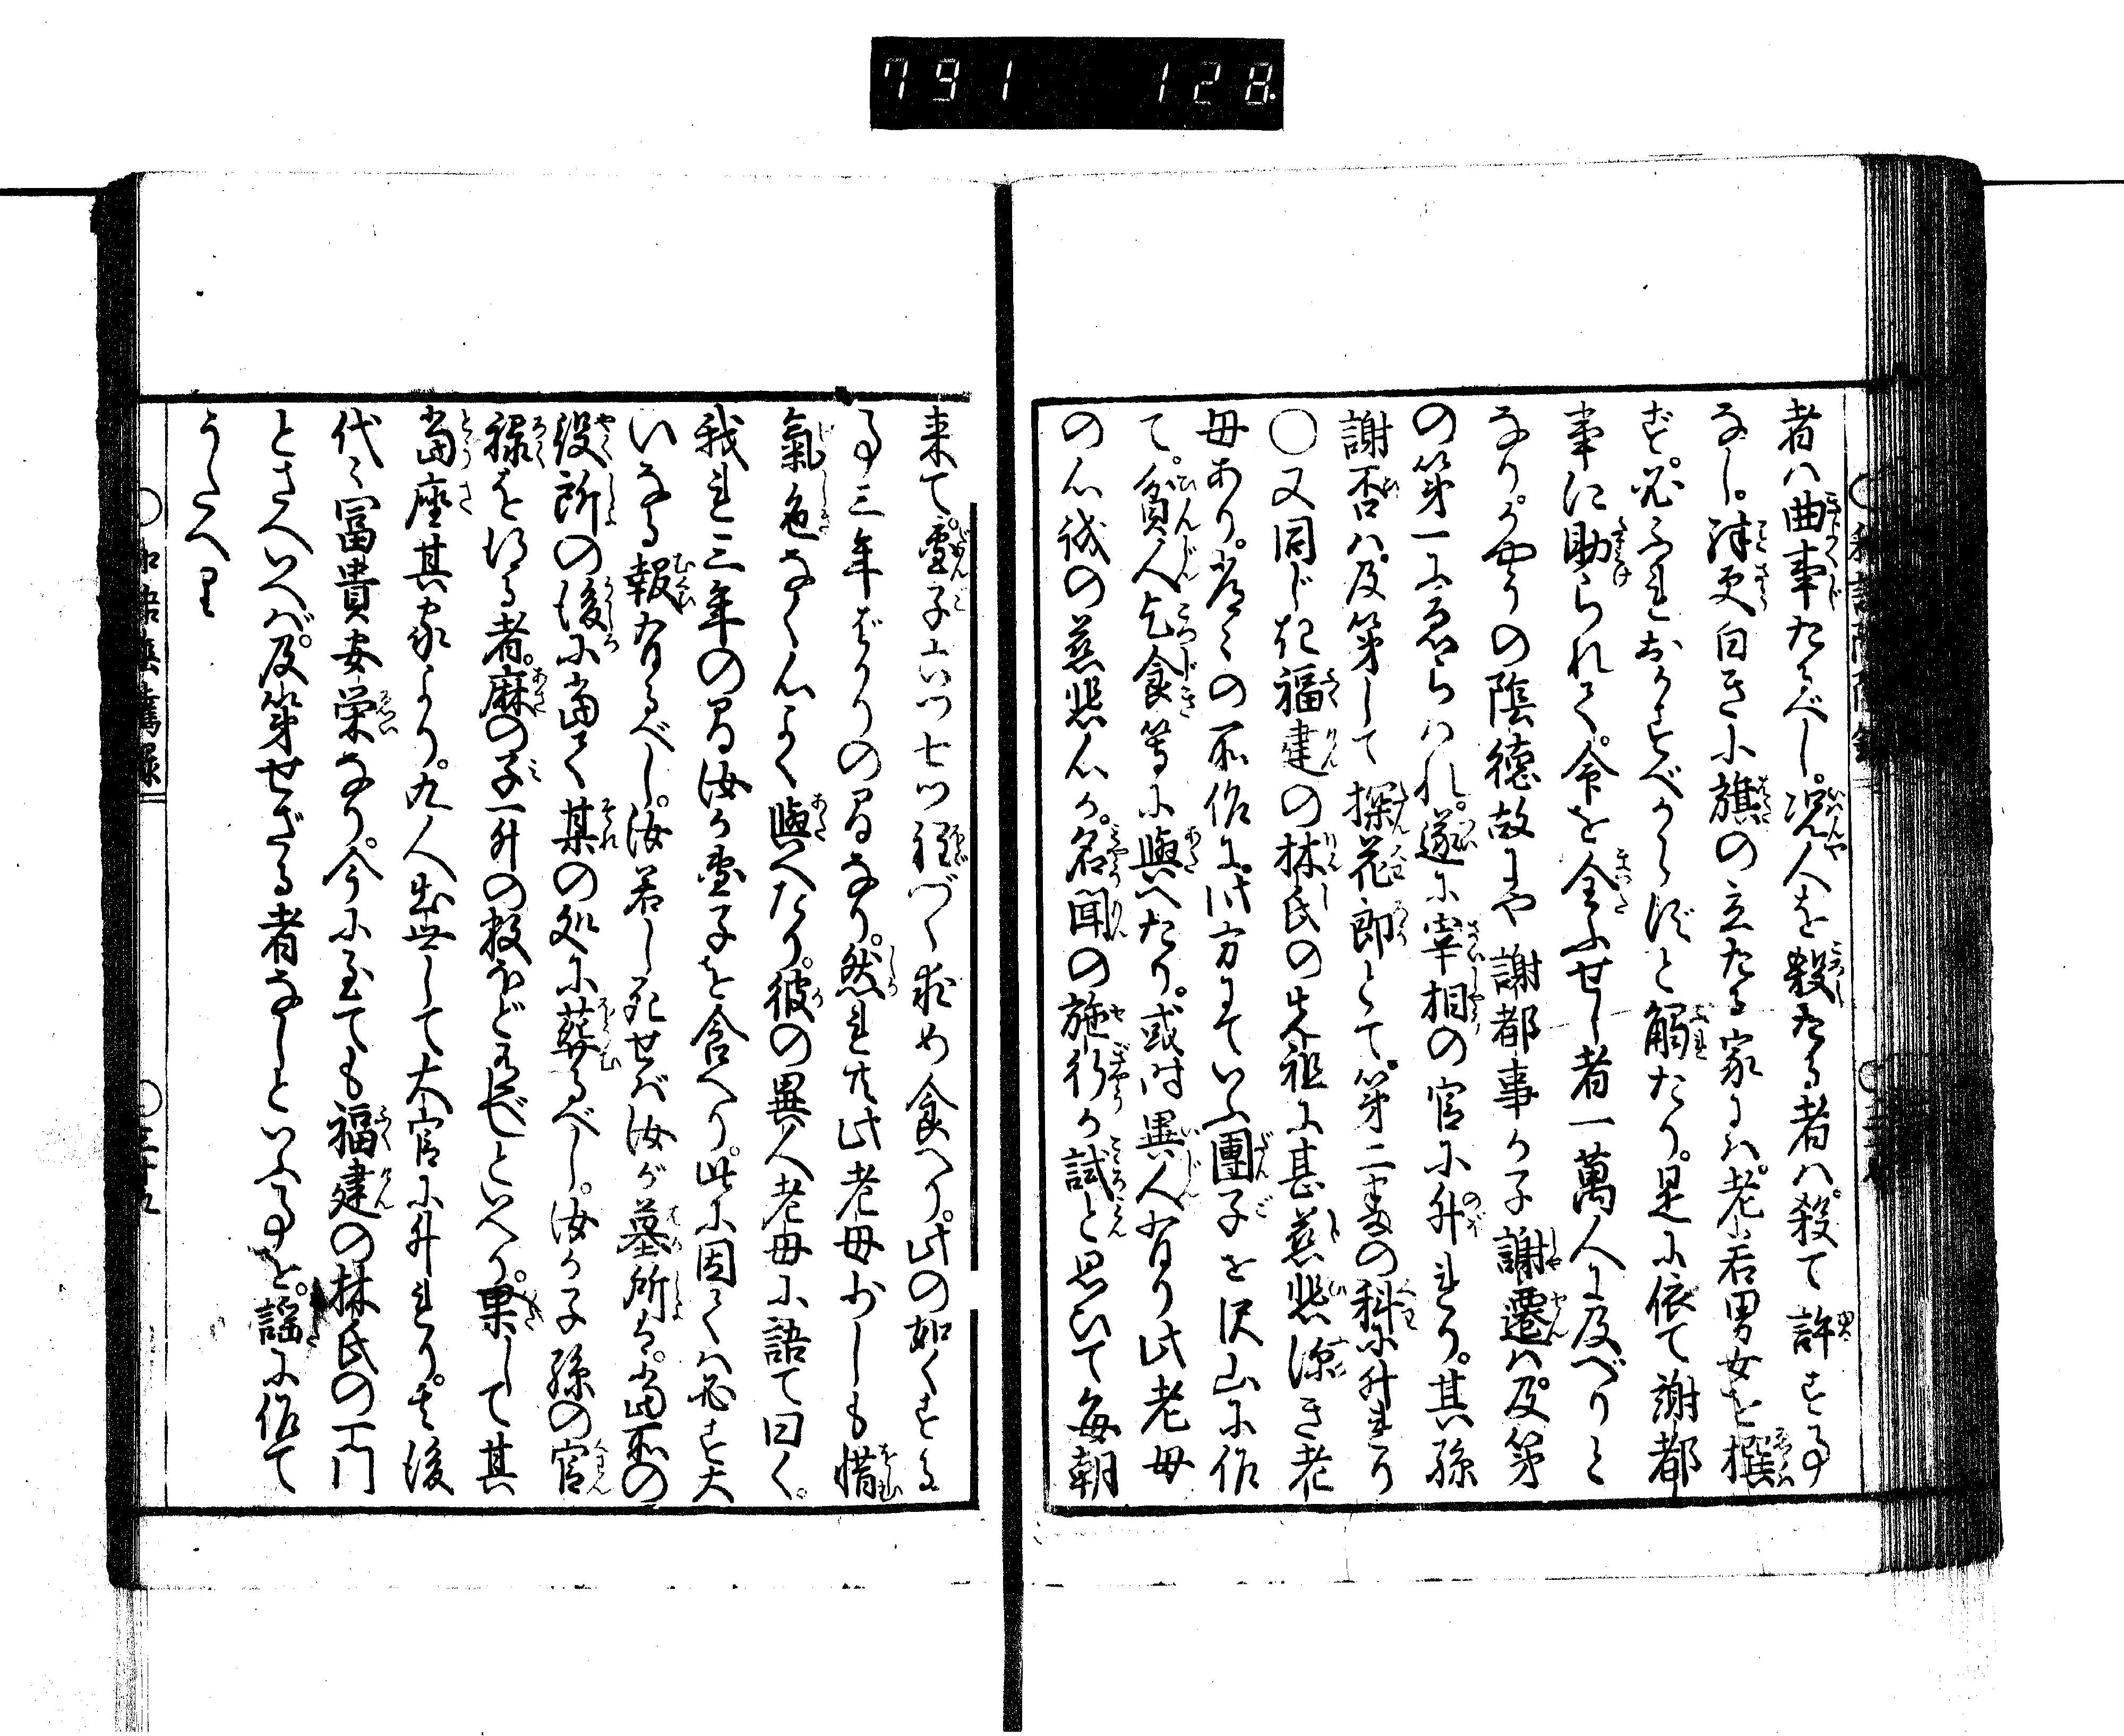 791 128
者ハ曲事たるべし。况人を殺たる者ハ。殺て許す事
なし。殊更白き小旗の立たる家にハ。老若男女を撰
ず。必ふれおかすべからずと觸たり。是に依て謝都
事に助られて。命を全ふせし者一萬人に及べりと
なり。かやうの陰德故にや謝都事か子謝遷ハ。及第
の第一にゑらハれ。遂に宰相の官に升れり。其孫
謝否ハ。及第して探花郎とて。第二番の科に升れり
〇又同じ記福建の林氏の先祖に甚慈悲深き老
母あり。常々の所作に。此方にていふ團子を沢山に作
て。貧人乞食等に與へたり。或时異人有り此老母
の心誠の慈悲心か。名聞の施行か試と思ひて毎朝
来て。團子六ツ七ツ程づゝ求め食へり。此の如くする
事三年ばかりの間なり。然れ共此老母少しも惜
氣色なく心よく與へたり。彼の異人老母に語て曰く。
我れ三年の間汝か團子を食へり。此に因てハ必ず大
いなる報有るべし。汝若し死せバ汝が墓所を。當所の
役所の後に當て某の処に葬るべし。汝か子孫の官
禄を得る者。麻の子一升の数ほど有べしといへり。果して其
當座其家より。九人出世して大官に升れり。其後
代々冨貴安栄なり。今に至ても福建の林氏の一門
とさへいへバ。及第せざる者なしといふ事を。謡に作て
うたへり